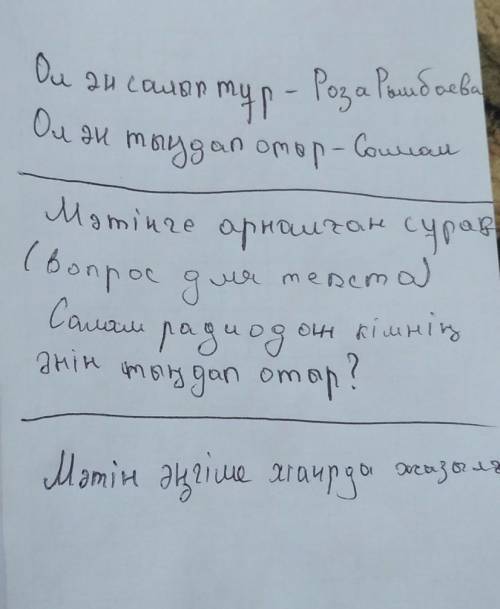 Ол ән салып тұр - Роза Рымбаева
Ол ән тыңдап отыр - Салтам
Мәтінге арналған сұрақ
(вопрос для текста)
Салтам радиодан кімнің
әнін тыңдап отыр?
Мәтін әңгіме жанрда жазыл